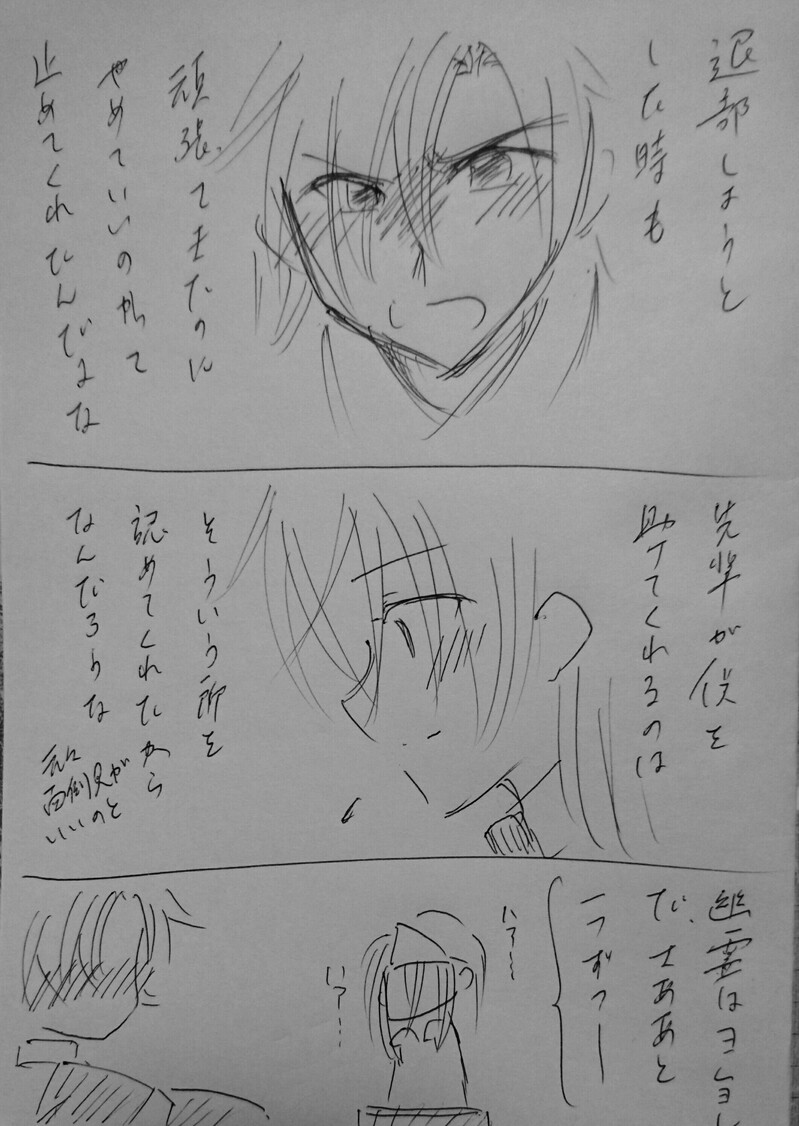 退部しようと
した時も
頑張てきたのに
やめていいのかって
止めてくれたんだよな
先輩が僕を
助けてくれるのは
そういう所を
認めてくれたから
なんだろうな
元々
面倒見が
いいのと
幽霊はヨショシ
で、
一つずつー
ハァ…
ハァ…